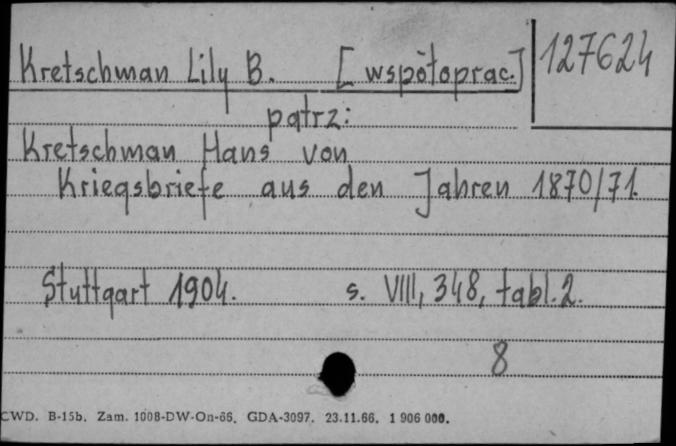 Kretschman Lily B. [współoprac.] 127624
patrz:
Kretschman Hans von
Kriegsbriefe aus den Jahren 1870/71.
Stuttgart 1904. s. VIII, 348, tabl. 2.
8
CWD. B-15b. Zam. 1008-DW-On-66. GDA-3097. 23.11.66. 1 906 000.